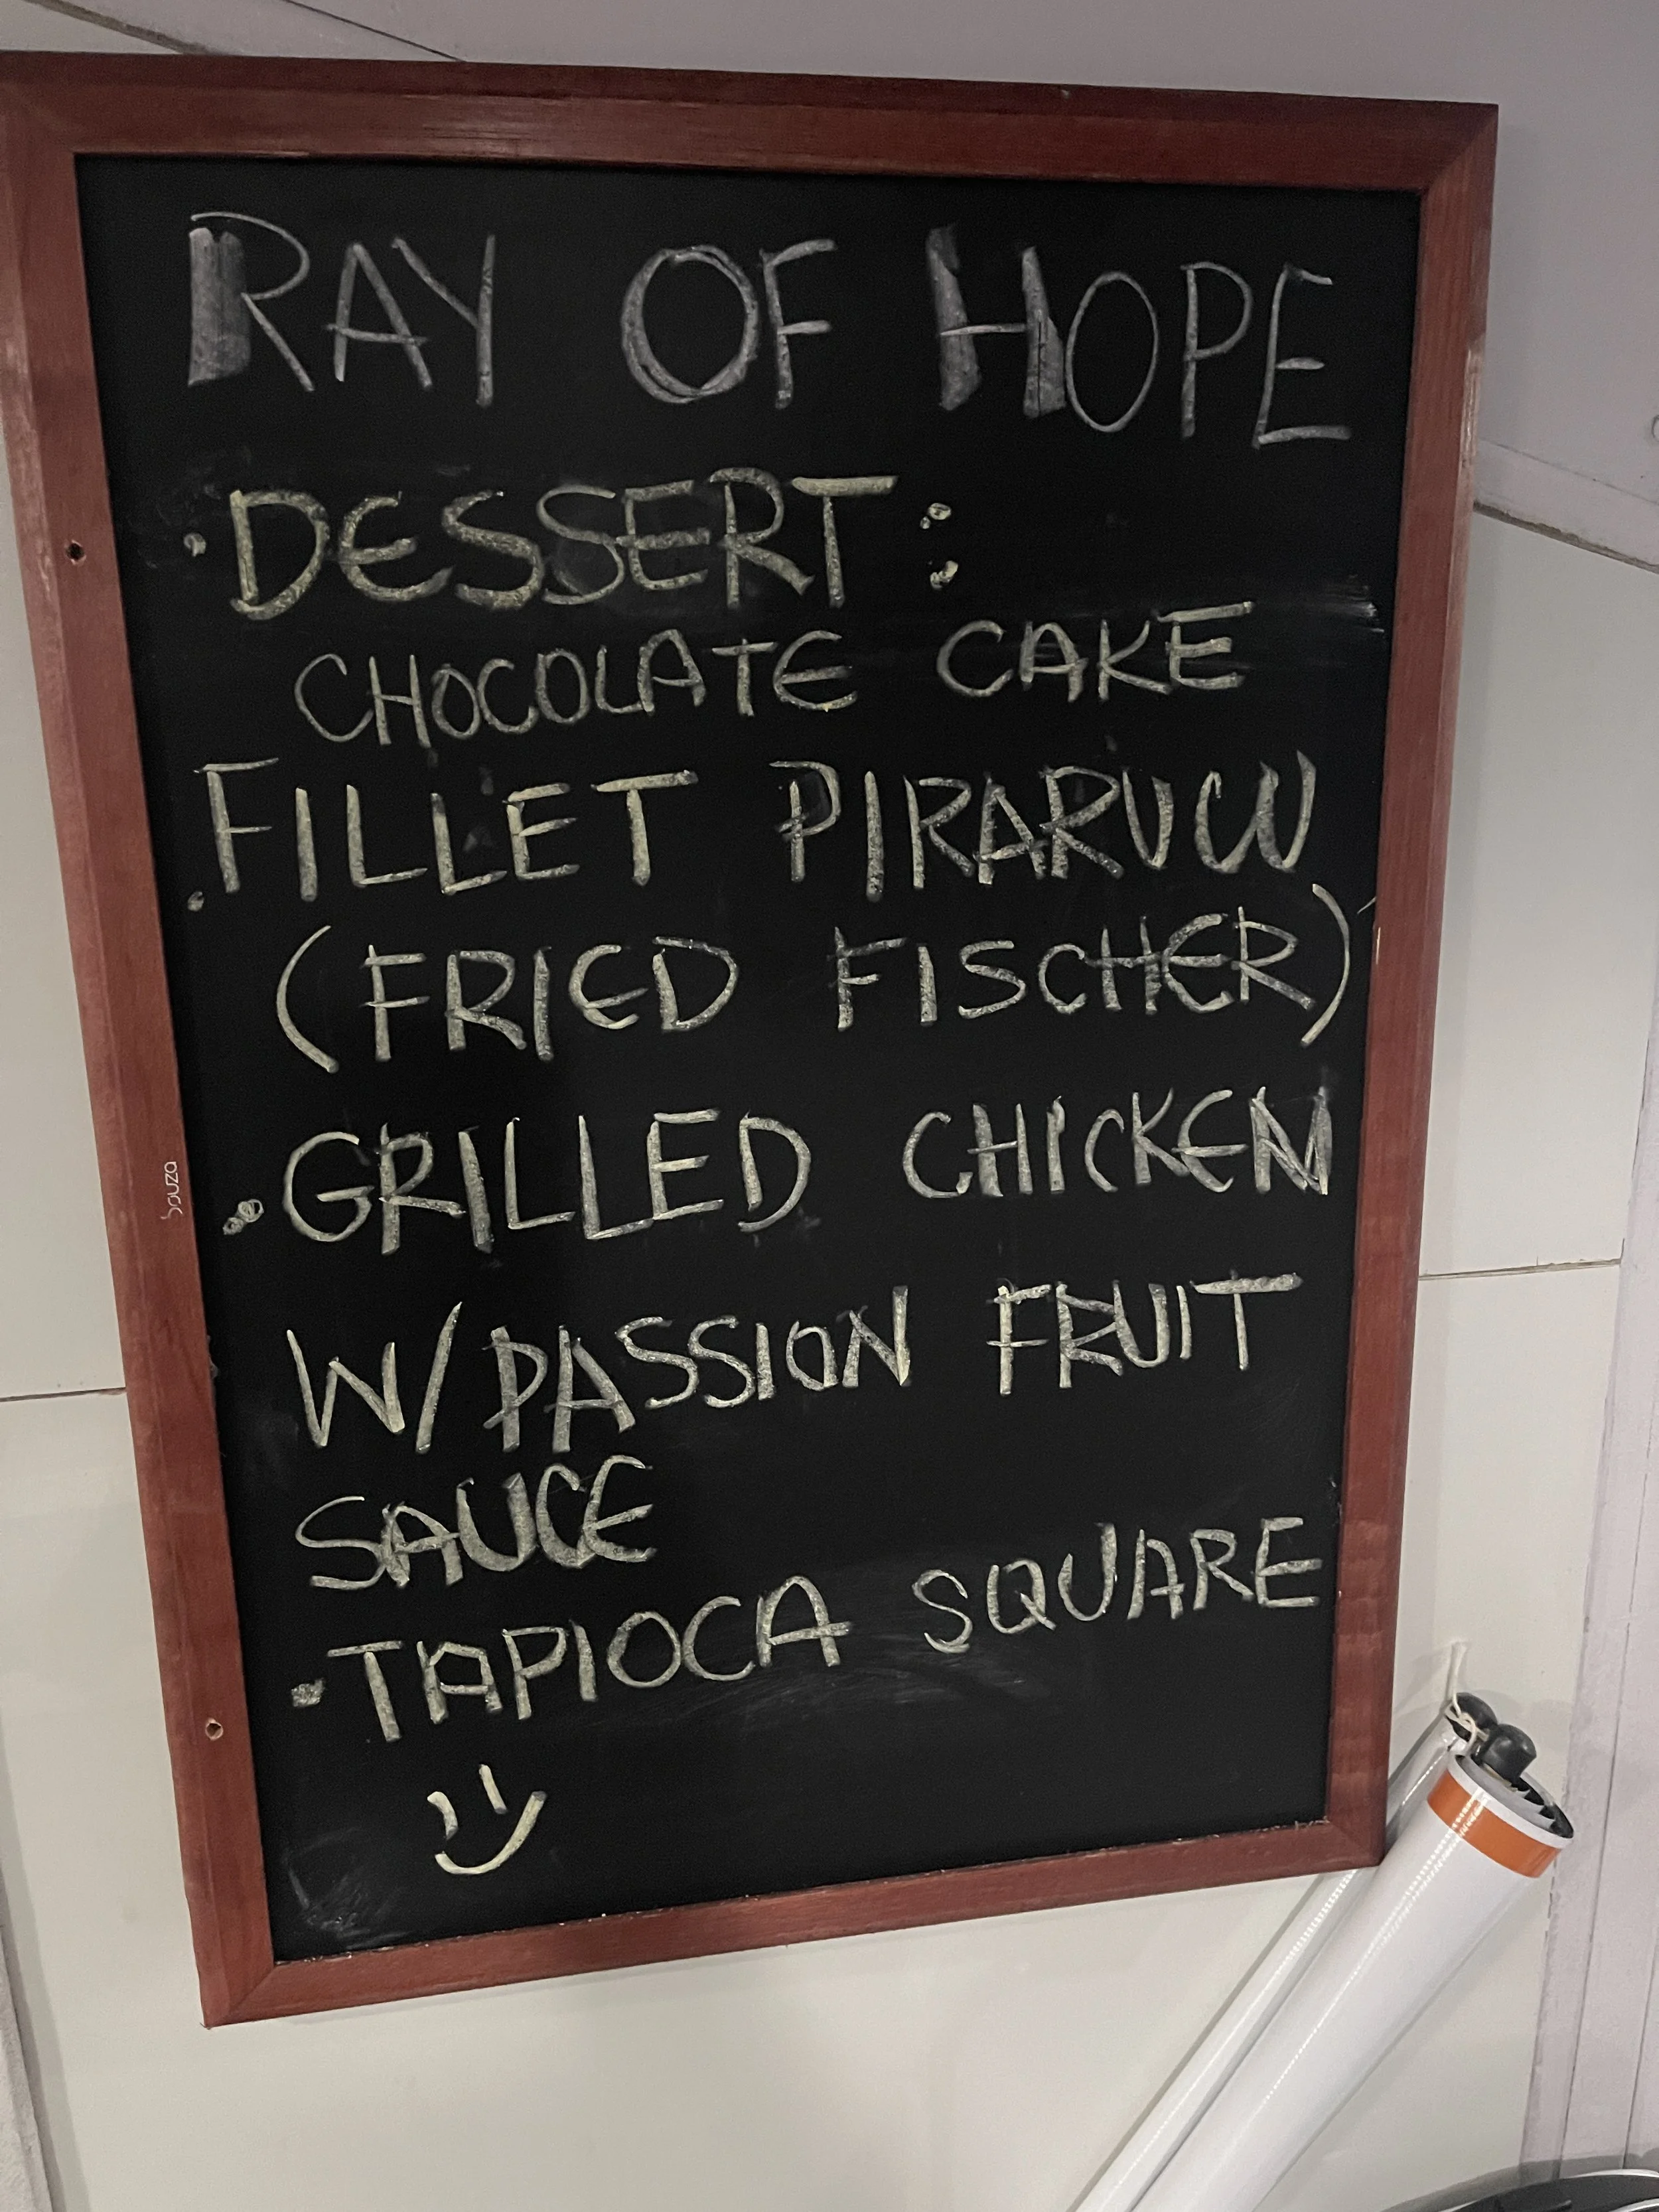 RAY OF HOPE
·DESSERT:
CHOCOLATE CAKE
.FILLET PIRARUCU
(FRIED FISCHER)
·GRILLED CHICKEN
W/PASSION FRUIT
SAUCE
·TAPIOCA SQUARE
souza